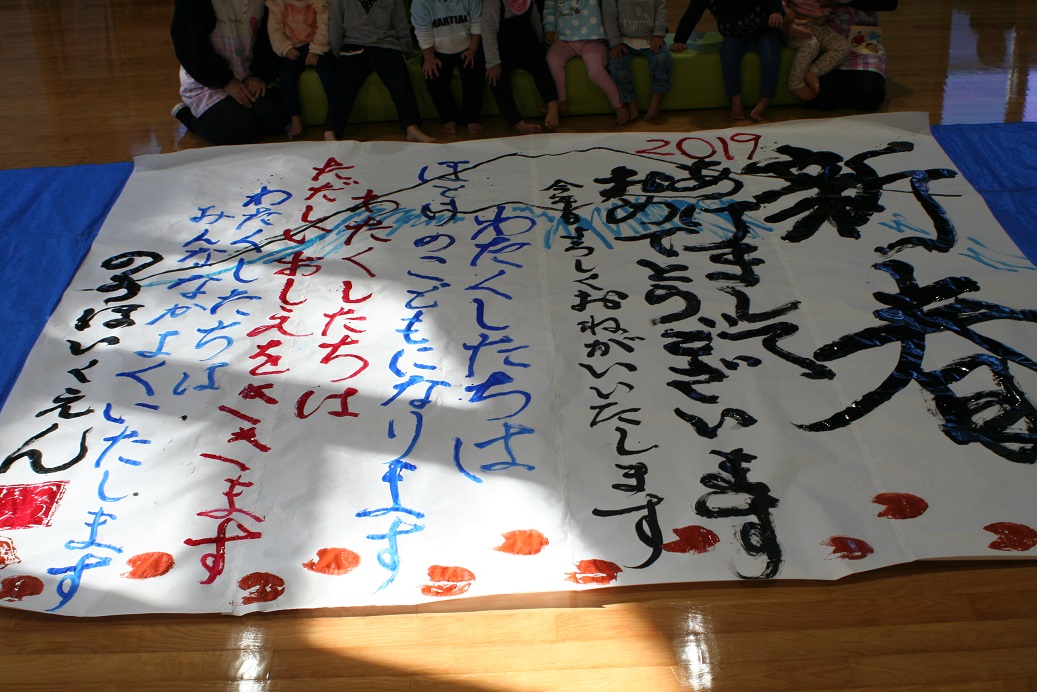 MARTIAL
2019
新春
あけまして
おめでとうございます
今年もよろしくおねがいいたします
わたくしたちは
ほとけのこどもになります
わたくしたちは
ただしいおしえをききます
わたくしたちは
みんななかよくいたします
ほいくえん